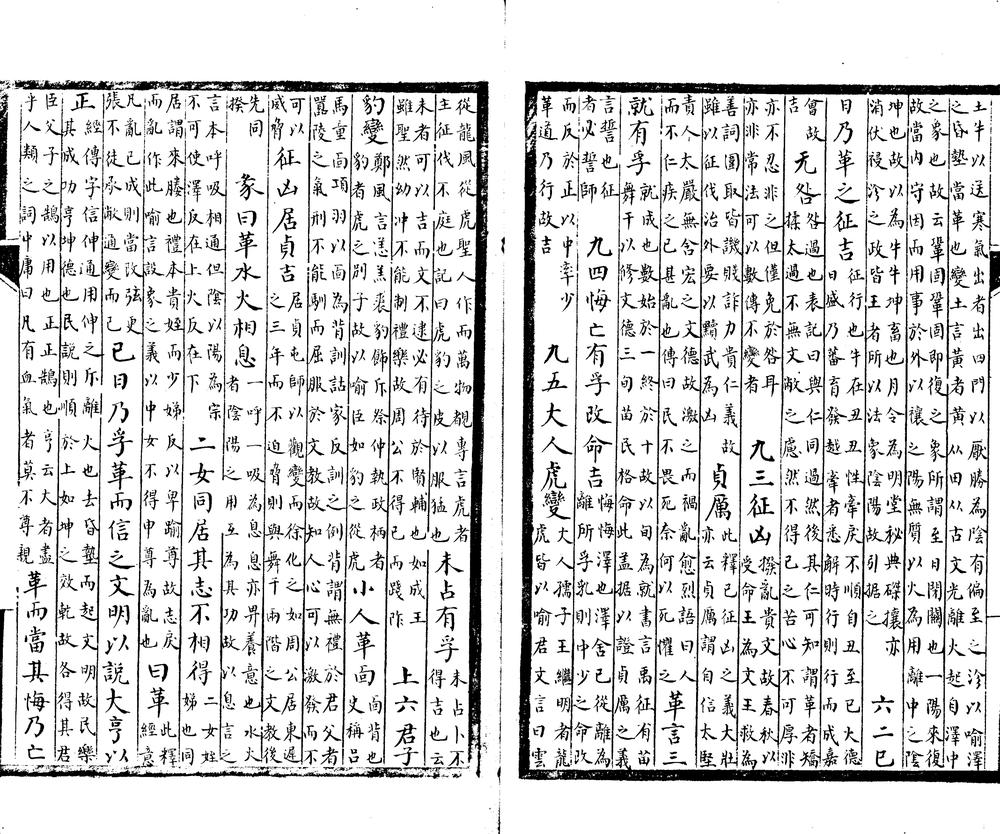 土牛以送寒氣出者出言四門以厭勝為陰有偏至之沴以喻澤
之昏墊當革也變土言黃者黃从田从古文光離火大起自澤中
之象也故云鞏固鞏固即復之象所謂至日閉關也一陽來復
故當内守固而用事於外以禳之陽無質以火為用離中之陰
坤也故以為牛牛坤畜也月令為明堂秘典磔攘亦
消伏祲沴之政皆王者所以法象陰陽故引据之
六二巳
日乃革之征吉
征行也牛在丑丑性牽戾不順自丑至巳大德
日盛乃蕃育發越牽者悉解時行則行而成嘉
會故
吉
无咎
咎過也表記曰與仁同過然後其仁可知謂革者矯
揉太過不無文敝之處然不得已之苦心不可厚非
亦不忍非之但僅免於咎耳
亦非常法可以數傳不變者
九三征凶
撥亂貴文故春秋以
受命王為文王王救為
善詞圍取皆譏貶詐力貴仁義故
雖以征伐治外要以黷武為凶
貞厲
此釋已征凶之義大壯
亦云貞厲謂自信太堅
責人太嚴無舍宏之文德故激之而禍亂愈烈語曰人
而不仁疾之已甚亂也傳曰民不畏死奈何以死懼之
革言三
就有孚
就成也數始於一終於十故以旬為就書言禹征有苗
舞干以修文德三旬苗民格命此蓋据以證貞厲之義
言誓也征
者必誓師
九四悔亡有孚改命吉
悔悔澤也澤舍已從離為
離所孚乳則中少之命改
而反於正以中率少
革道乃行故吉
九五大人虎變
大人孺子王繼明者龍
虎皆以喻君文言曰雲
從龍風從虎聖人作而萬物覩專言虎者
主征伐不庭也記曰虎豹之皮以服猛也
未占有孚
未占卜不
得吉也云
未者可以吉而文不逮必有待於賢輔也如成王
雖聖然幼冲不能制禮樂故周公不得已而踐阼
上六君子
豹變
鄭風言羔羔裘豹飾斥祭仲執政柄者
豹者虎之别子故以喻臣如豹之從虎
小人革面
面背也
史稱吕
馬童面項羽以面為背訓詁家反訓之例背謂無禮於君父者
驕陵之氣刑不能馴而屈服於文教故知人心可以激發而不
可以
威脅
征凶居貞吉
居貞屯師以觀變而徐化之如周公居東遲
之三年而不迫脅則與舞干兩階之文教後
先同
揆
彖曰革水火相息
一呼一吸為息息亦畀養意也水火
者陰陽之用互為其功故以息言之
言本呼吸相通但陰以陽為宗
不可使澤反在上火反在下
二女同居其志不相得
二女姪
娣也同
居謂來媵也禮本貴姪而少娣反以卑踰尊故志戾
而亂作此喻言設象之義以中女不得申尊為亂也
曰革
此釋
經意
凡亂已成則當改弦更
張不徒承敝通變而已
巳日乃孚革而信之文明以說大亨以
正
經傳字信伸通用伸之斥離火也去昏墊而起文明故民樂
其成功亨坤德也民說則順於上如坤之效乾故各得其君
臣父子之鵠以用也正正鵠也亨云大者盡
乎人類之詞中庸曰凡有血氣者莫不尊親
革而當其悔乃亡